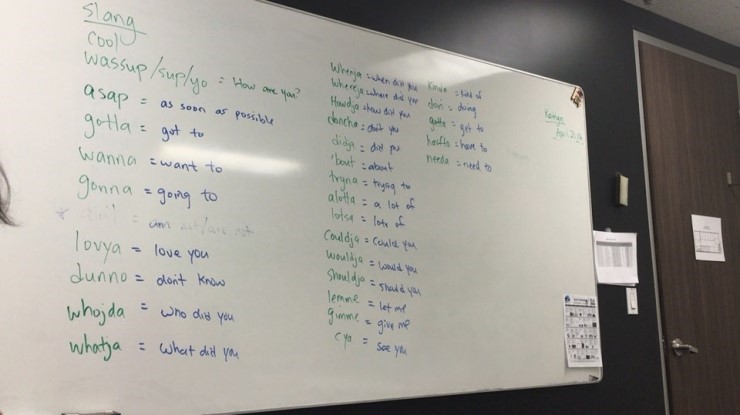 slang
cool
wassup/sup/yo = How are you?
asap = as soon as possible
gotta = got to
wanna = want to
gonna = going to
ain't = am not/are not
lovya = love you
dunno = don't know
whojda = who did you
whatja = what did you
Whenja = when did you
Whereja = where did you
Howdja = how did you
doncha = don't you
didja = did you
'bout = about
tryna = trying to
alotta = a lot of
lotsa = lots of
Couldja = Could you
wouldja = would you
shouldja = should you
lemme = let me
gimme = give me
cya = see you
Kinda = kind of
doin' = doing
gotta = got to
hafta = have to
needa = need to